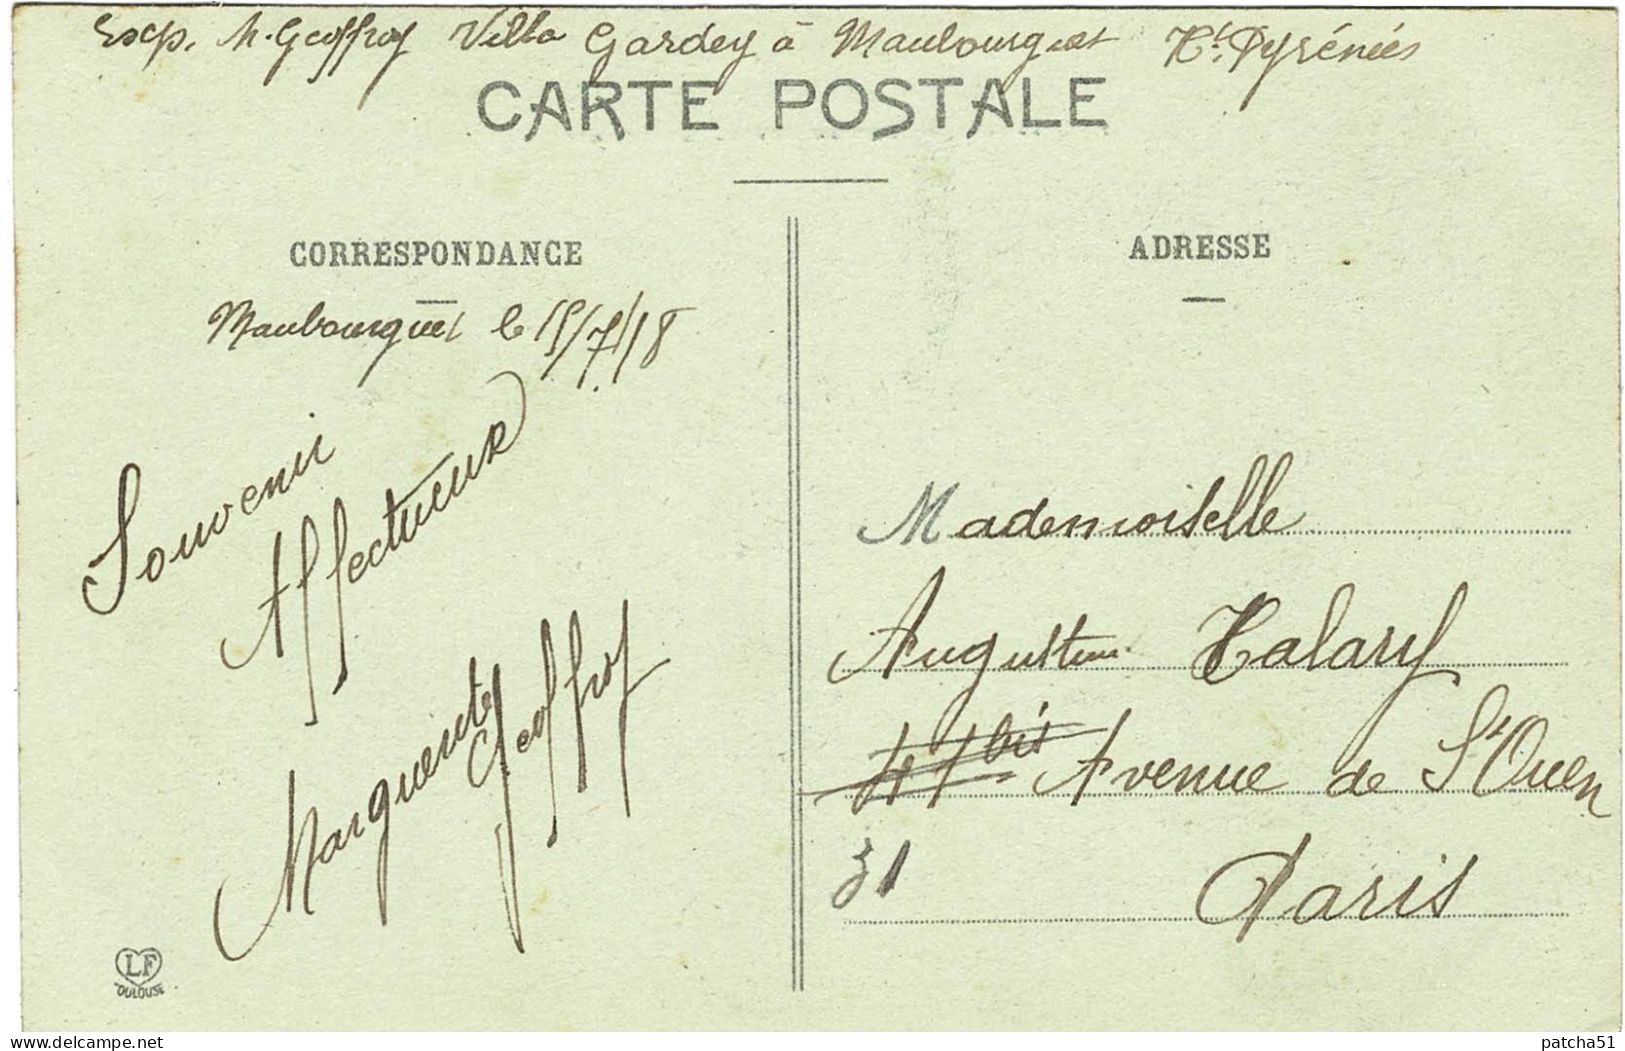 Exp. M. Geoffroy Villa Gardey à Maubourguet Htes Pyrénées
CARTE POSTALE
CORRESPONDANCE
Maubourguet le 15/7/18
Souvenir
Affectueux
Marguerite
Geoffroy
LF
TOULOUSE
ADRESSE
Mademoiselle
Augustine Talary
41 bis Avenue de St Ouen
31 Paris
delcampe.net
patcha51